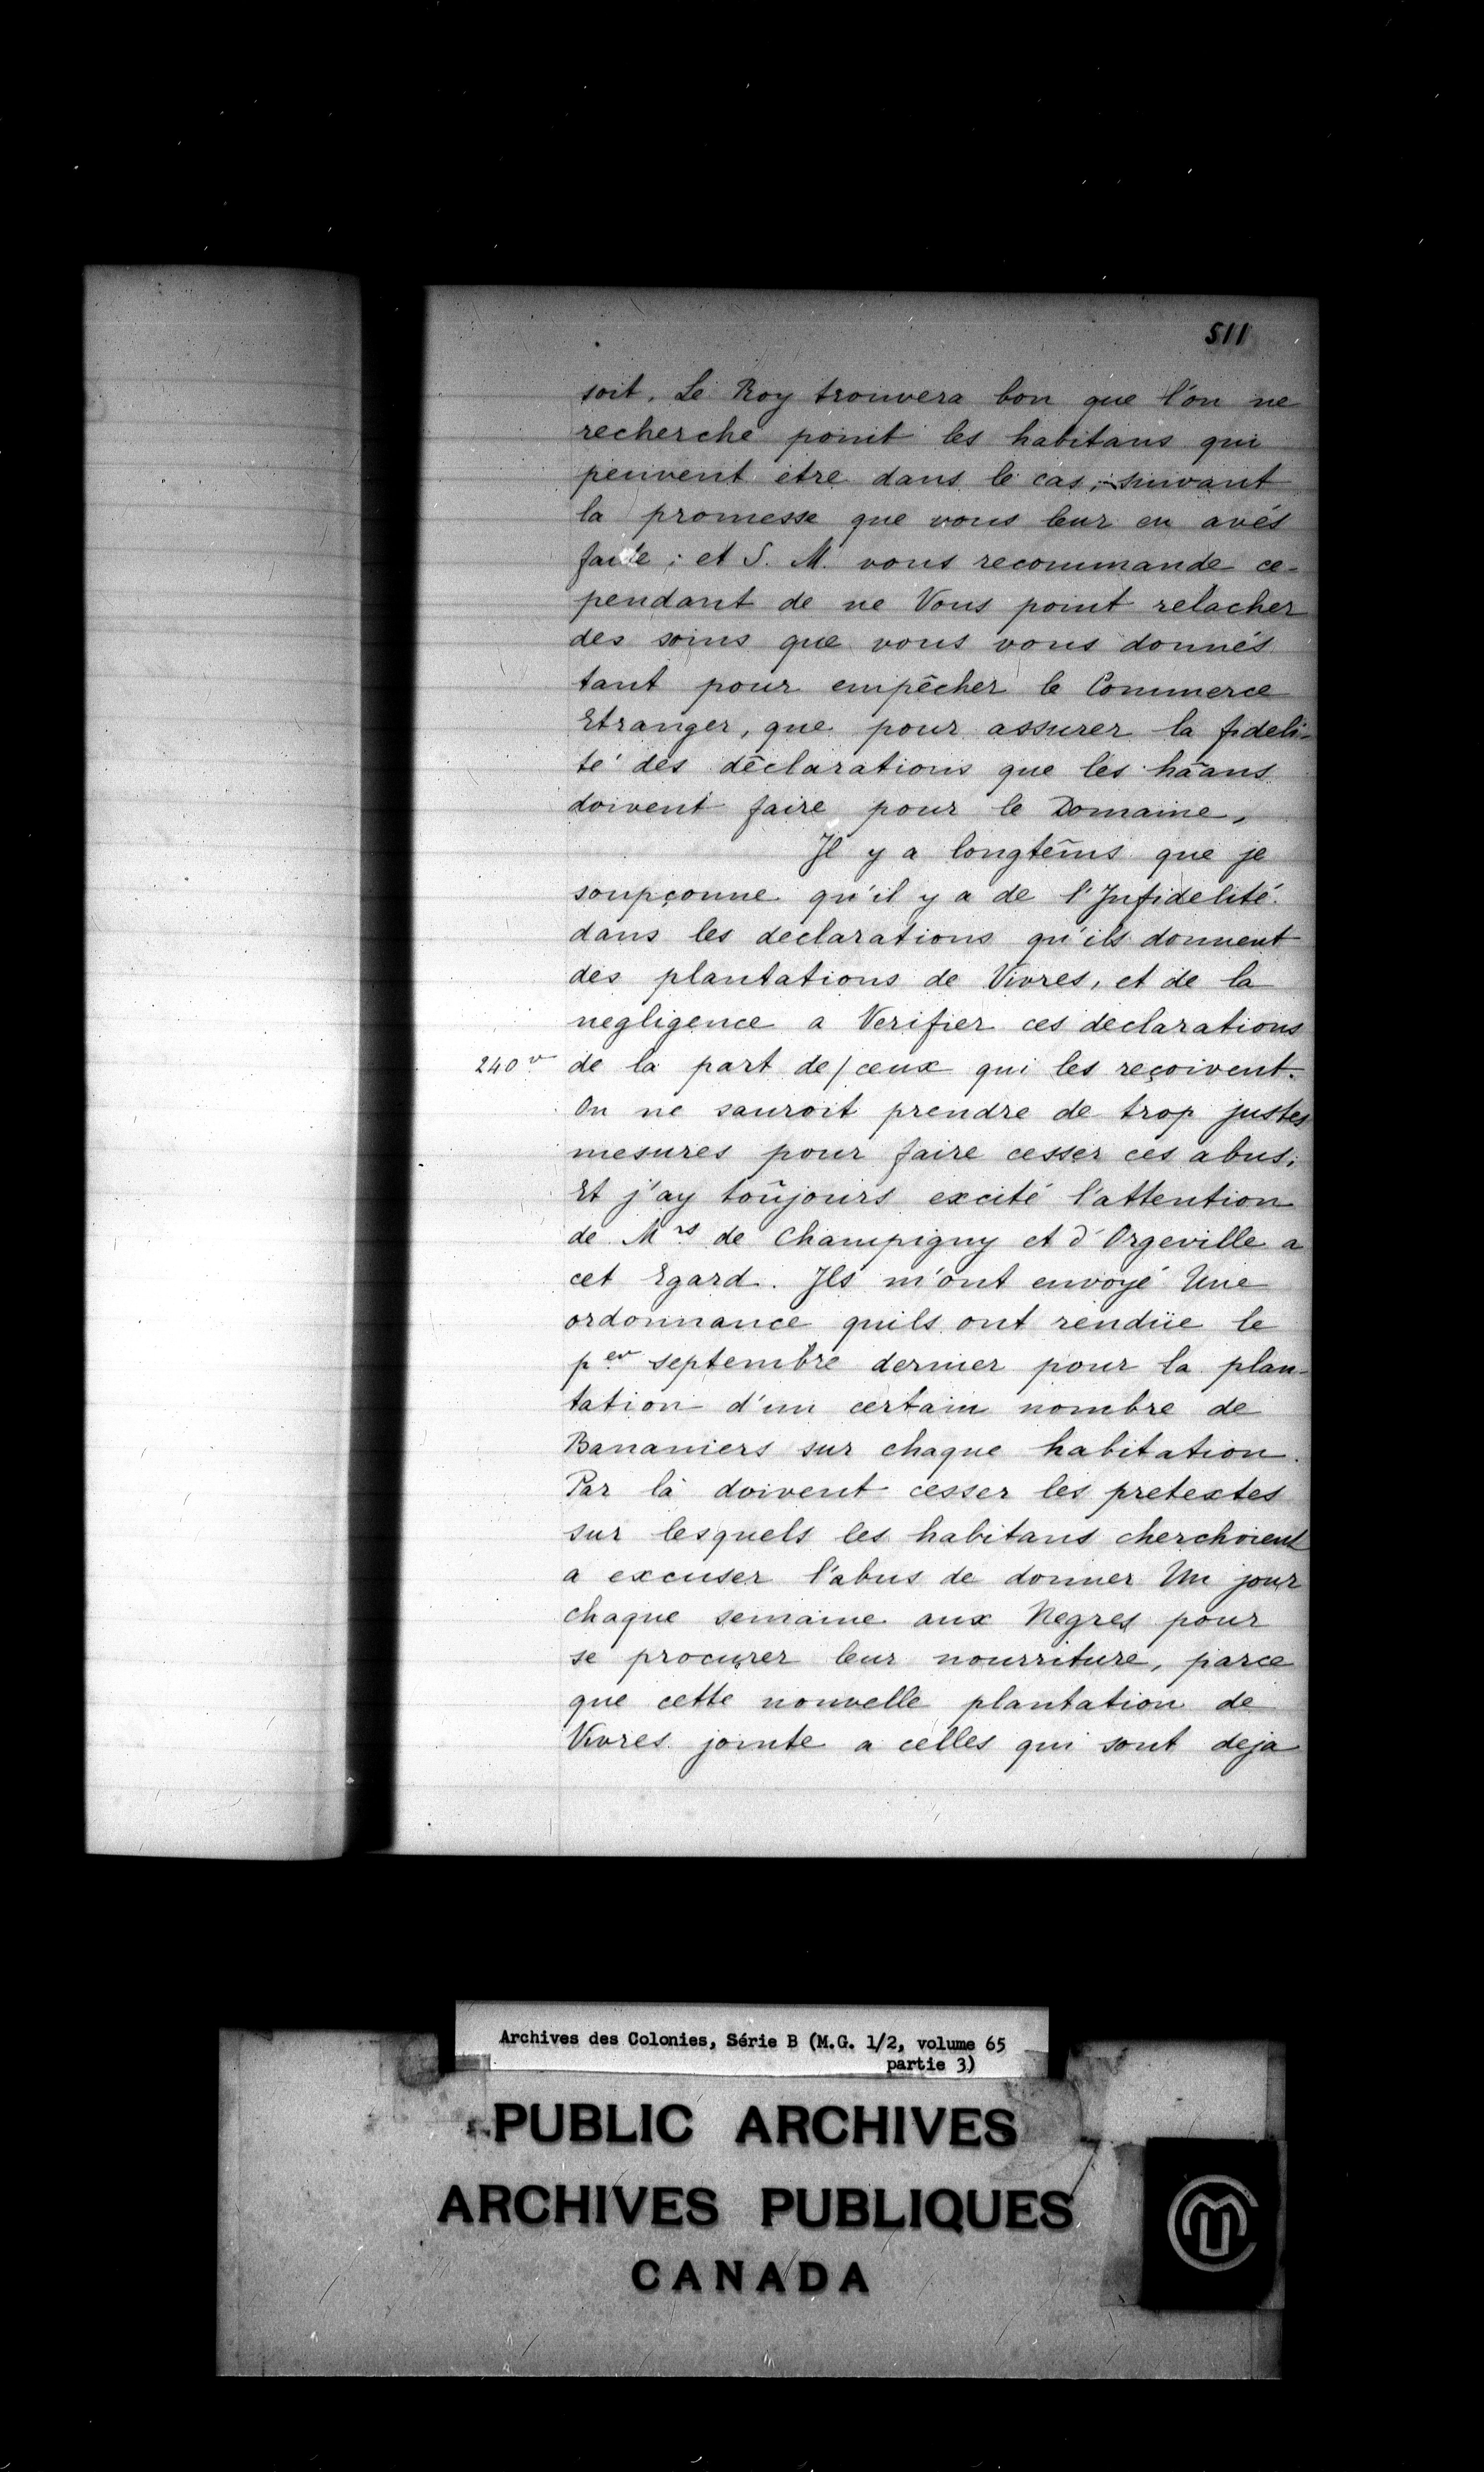 511
soit. Le Roy trouvera bon que l'on ne
recherche point les habitans qui
peuvent etre dans le cas, suivant
la promesse que vous leur en avés
faite ; et S. M. vous recommande ce-
pendant de ne Vous point relacher
des soins que vous vous donnés
tant pour empêcher le Commerce
Etranger, que pour assurer la fideli-
té des déclarations que les hãans
doivent faire pour le Domaine,
Il y a longtem̃s que je
soupçonne qu'il y a de l'Infidelité
dans les declarations qu'ils donnent
des plantations de Vivres, et de la
negligence a Verifier ces declarations
240 v de la part de/ceux qui les reçoivent.
On ne sauroit prendre de trop justes
mesures pour faire cesser ces abus.
Et j'ay toûjours excité l'attention
de Mrs de Champigny et d'Orgeville a
cet Egard. Ils m'ont envoyé Une
ordonnance quils ont rendüe le
per septembre dernier pour la plan-
tation d'un certain nombre de
Bananiers sur chaque habitation.
Par là doivent cesser les pretextes
sur lesquels les habitans cherchoient
a excuser l'abus de donner Un jour
chaque semaine aux Negres pour
se procurer leur nourriture, parce
que cette nouvelle plantation de
Vivres jointe a celles qui sont deja
Archives des Colonies, Série B (M.G. 1/2, volume 65
partie 3)
PUBLIC ARCHIVES
ARCHIVES PUBLIQUES
CANADA